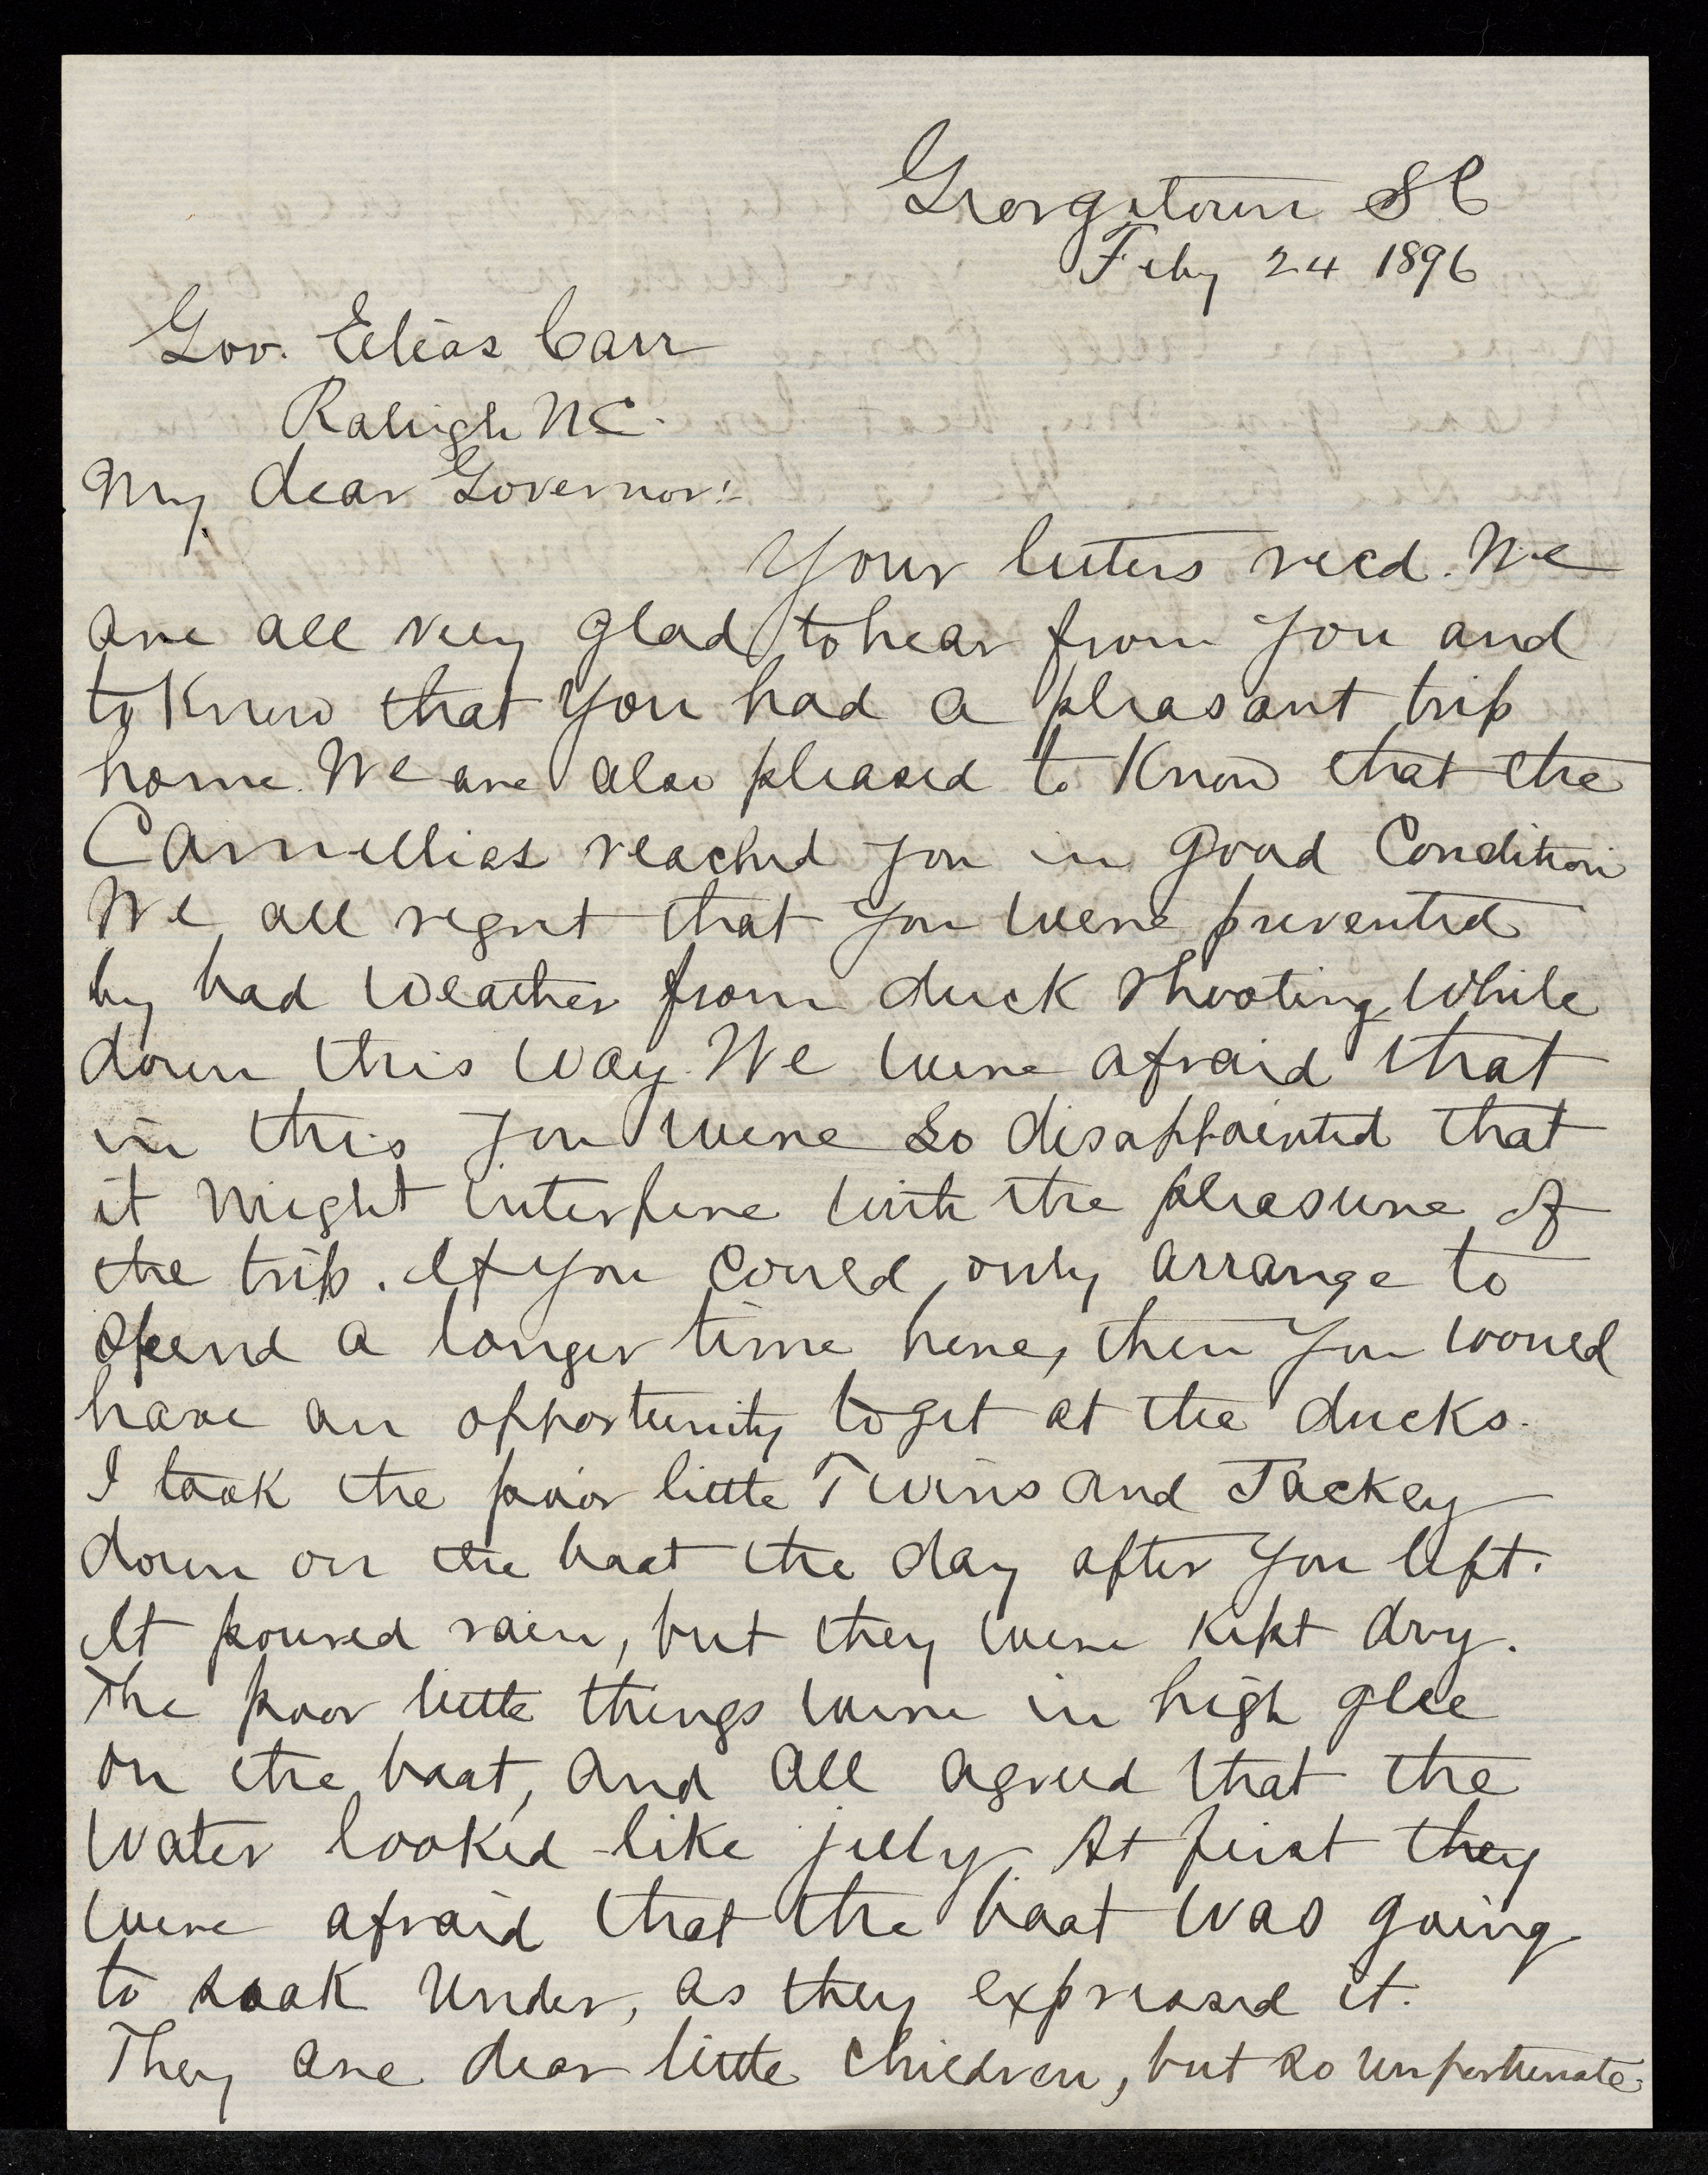 Georgetown SC
Feby 24 1896
Gov. Elias Carr
Raleigh NC.
My dear Governor:-
Your letters recd. We
are all very glad to hear from you and
to Know that you had a pleasant trip
home. We are also pleased to Know that the
Camellias reached you in good Condition
We all regret that you were prevented
by bad weather from duck shooting while
down this way. We were afraid that
in this you were so disappointed that
it might interfere with the pleasure of
the trip. If you could only arrange to
spend a longer time here, then you would
have an opportunity to get at the ducks.
I took the poor little Twins and Jackey
down on the boat the day after you left.
It poured rain, but they were kept dry.
The poor little things were in high glee
on the boat, and all agreed that the
water looked like jelly. At first they
were afraid that the boat was going
to soak under, as they expressed it.
They are dear little children, but so unfortunate.